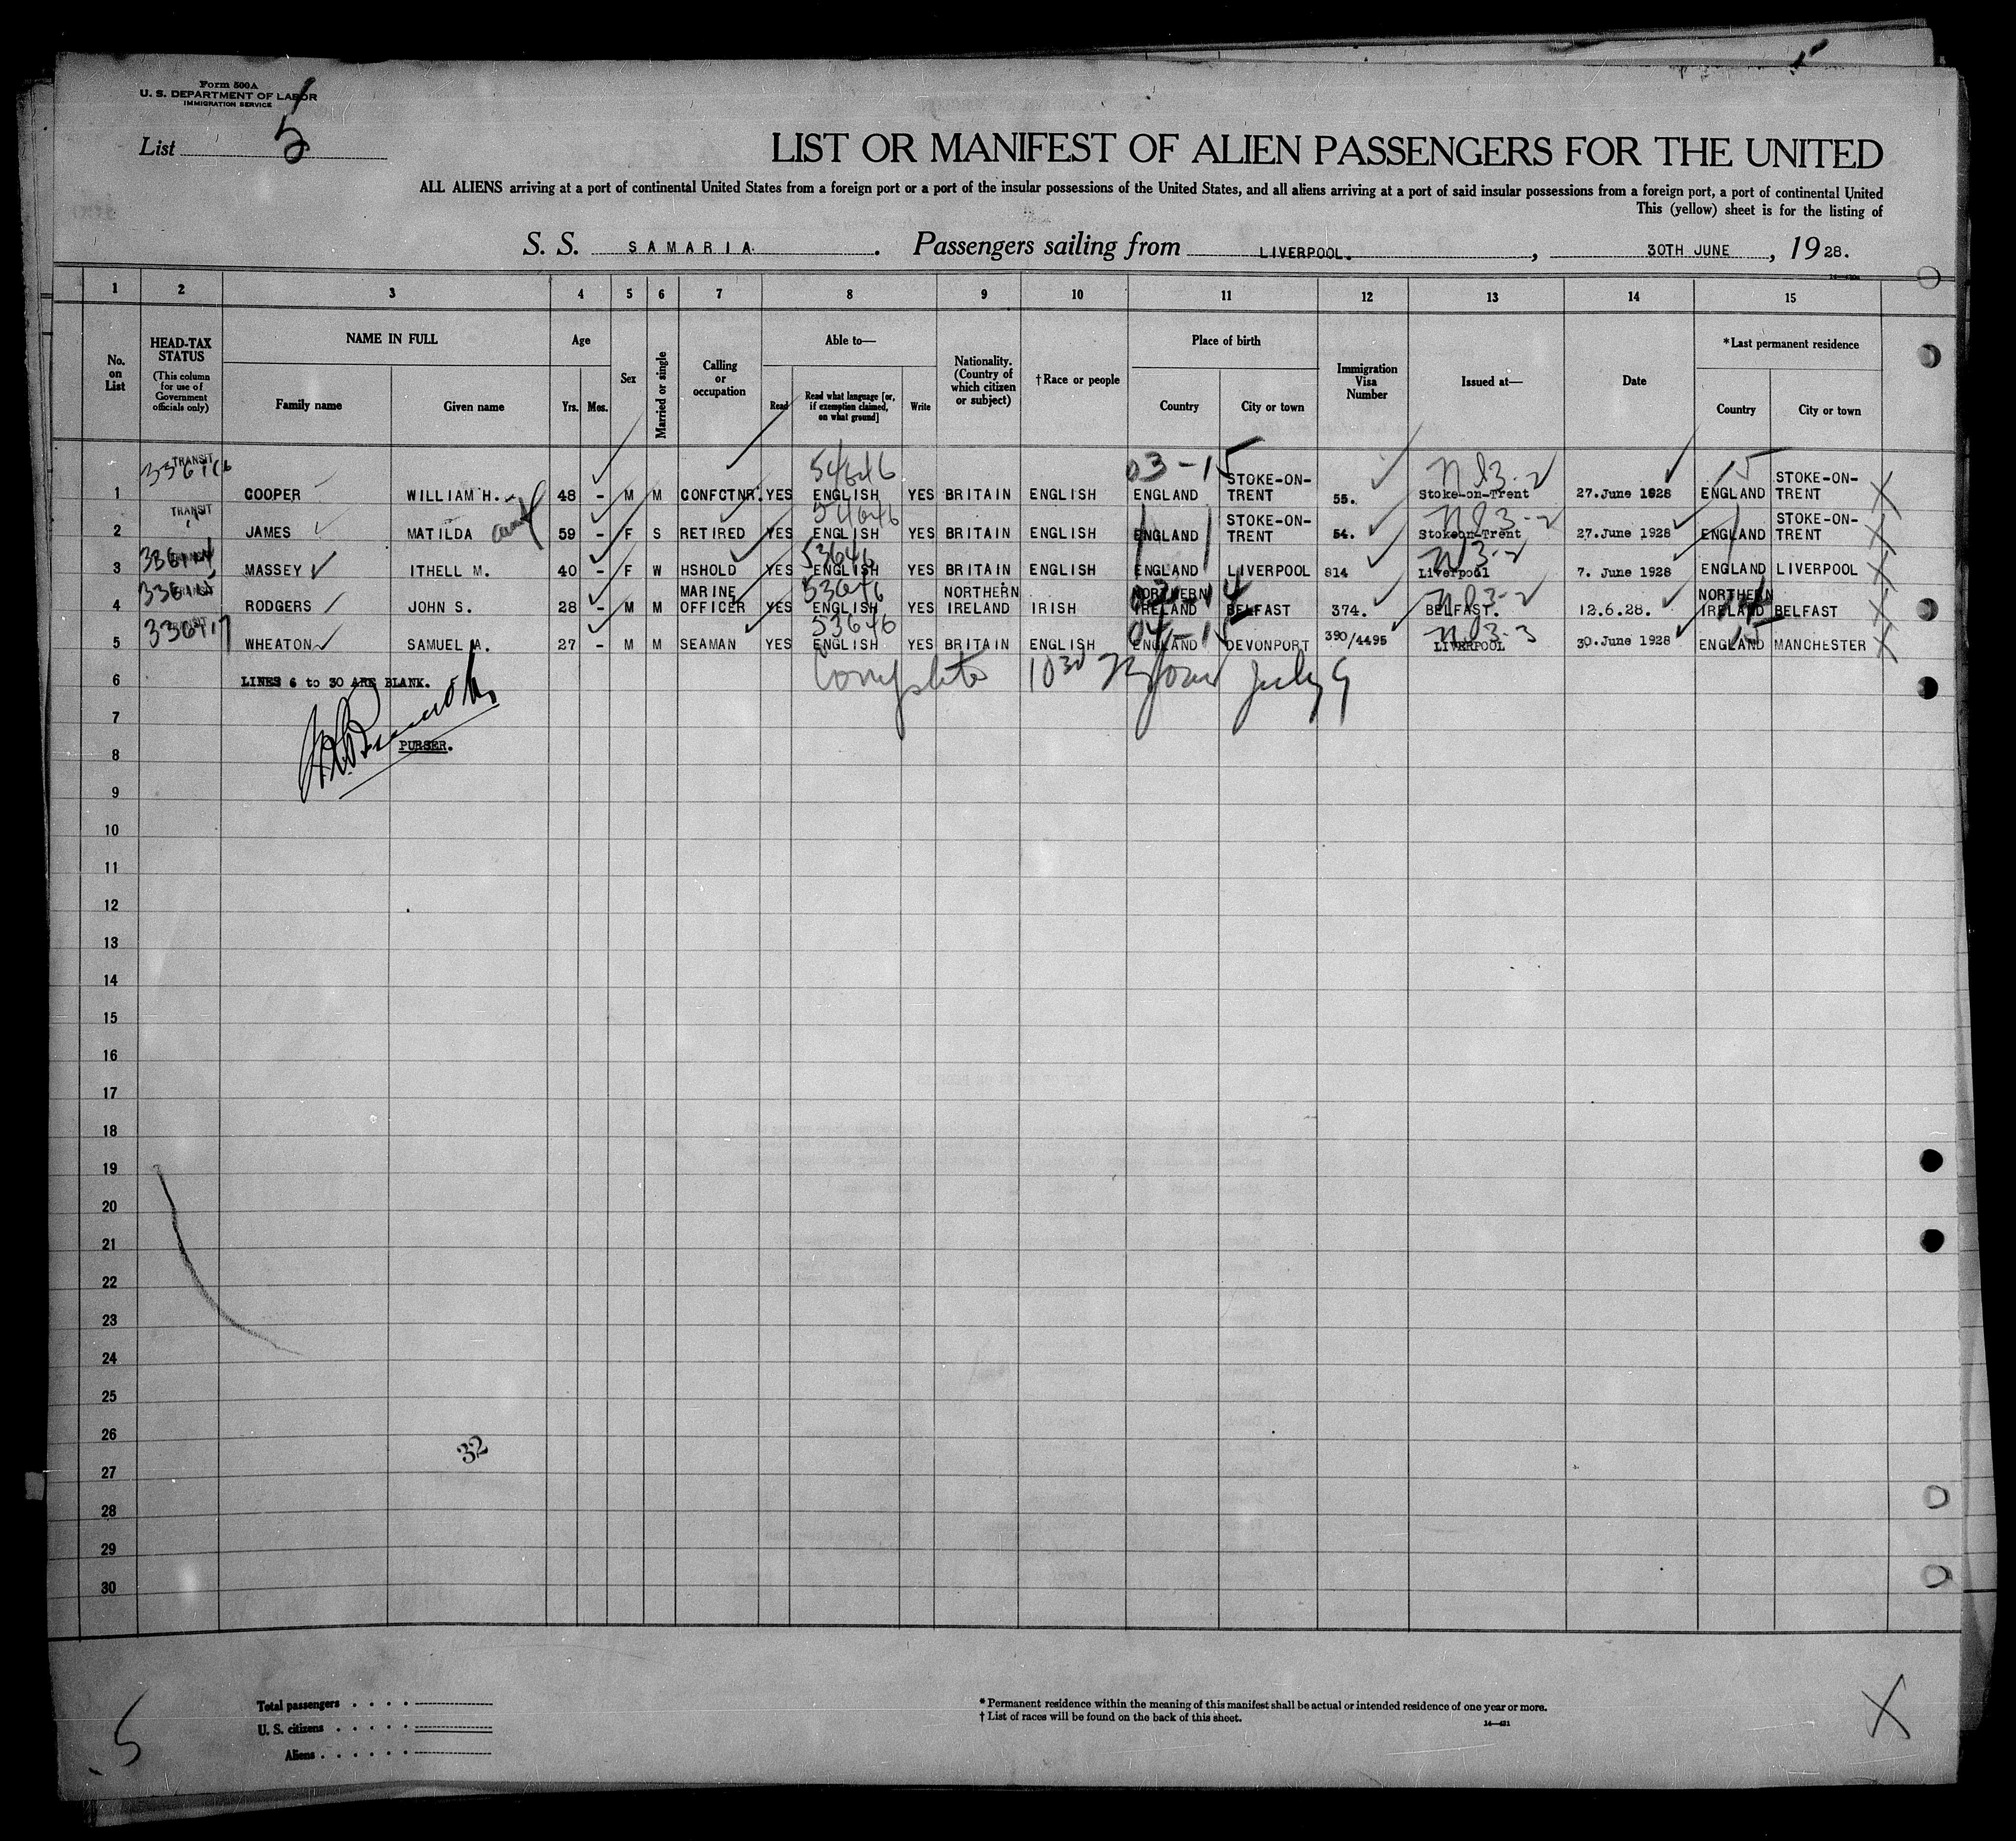 Form 500A
U. S. DEPARTMENT OF LABOR
IMMIGRATION SERVICE
List 5
LIST OR MANIFEST OF ALIEN PASSENGERS FOR THE UNITED
ALL ALIENS arriving at a port of continental United States from a foreign port or a port of the insular possessions of the United States, and all aliens arriving at a port of said insular possessions from a foreign port, a port of continental United
This (yellow) sheet is for the listing of
S. S. SAMARIA. Passengers sailing from LIVERPOOL., 30TH JUNE, 1928.
1 2 3 4 5 6 7 8 9 10 11 12 13 14 15
No. on List
HEAD-TAX STATUS
(This column for use of Government officials only)
NAME IN FULL
Family name Given name
Age
Yrs. Mos.
Sex
Married or single
Calling or occupation
Able to—
Read
Read what language [or, if exemption claimed, on what ground]
Write
Nationality. (Country of which citizen or subject)
†Race or people
Place of birth
Country City or town
Immigration Visa Number
Issued at—
Date
*Last permanent residence
Country City or town
TRANSIT 54646 03-15 15
1 COOPER WILLIAM H. 48 - M M CONFCTNR. YES ENGLISH YES BRITAIN ENGLISH ENGLAND STOKE-ON-TRENT 55. Stoke-on-Trent 27.June 1928 ENGLAND STOKE-ON-TRENT X
TRANSIT 54646
2 JAMES MATILDA 59 - F S RETIRED YES ENGLISH YES BRITAIN ENGLISH ENGLAND STOKE-ON-TRENT 54. Stokeon-Trent 27.June 1928 ENGLAND STOKE-ON-TRENT X
53646
3 MASSEY ITHELL M. 40 - F W HSHOLD YES ENGLISH YES BRITAIN ENGLISH ENGLAND LIVERPOOL 814 Liverpool 7. June 1928 ENGLAND LIVERPOOL X
53646
4 RODGERS JOHN S. 28 - M M MARINE OFFICER YES ENGLISH YES NORTHERN IRELAND IRISH NORTHERN IRELAND BELFAST 374. BELFAST. 12.6.28. NORTHERN IRELAND BELFAST X
53646
5 WHEATON SAMUEL A. 27 - M M SEAMAN YES ENGLISH YES BRITAIN ENGLISH ENGLAND DEVONPORT 390/4495 LIVERPOOL 30.June 1928 ENGLAND MANCHESTER X
6 LINES 6 to 30 ARE BLANK. Complete 10 30 July 9
7
8 PURSER.
9
10
11
12
13
14
15
16
17
18
19
20
21
22
23
24
25
26
32
27
28
29
30
5
Total passengers . . . .
U. S. citizens . . . . .
Aliens . . . . . .
* Permanent residence within the meaning of this manifest shall be actual or intended residence of one year or more.
† List of races will be found on the back of this sheet.
14—421
X